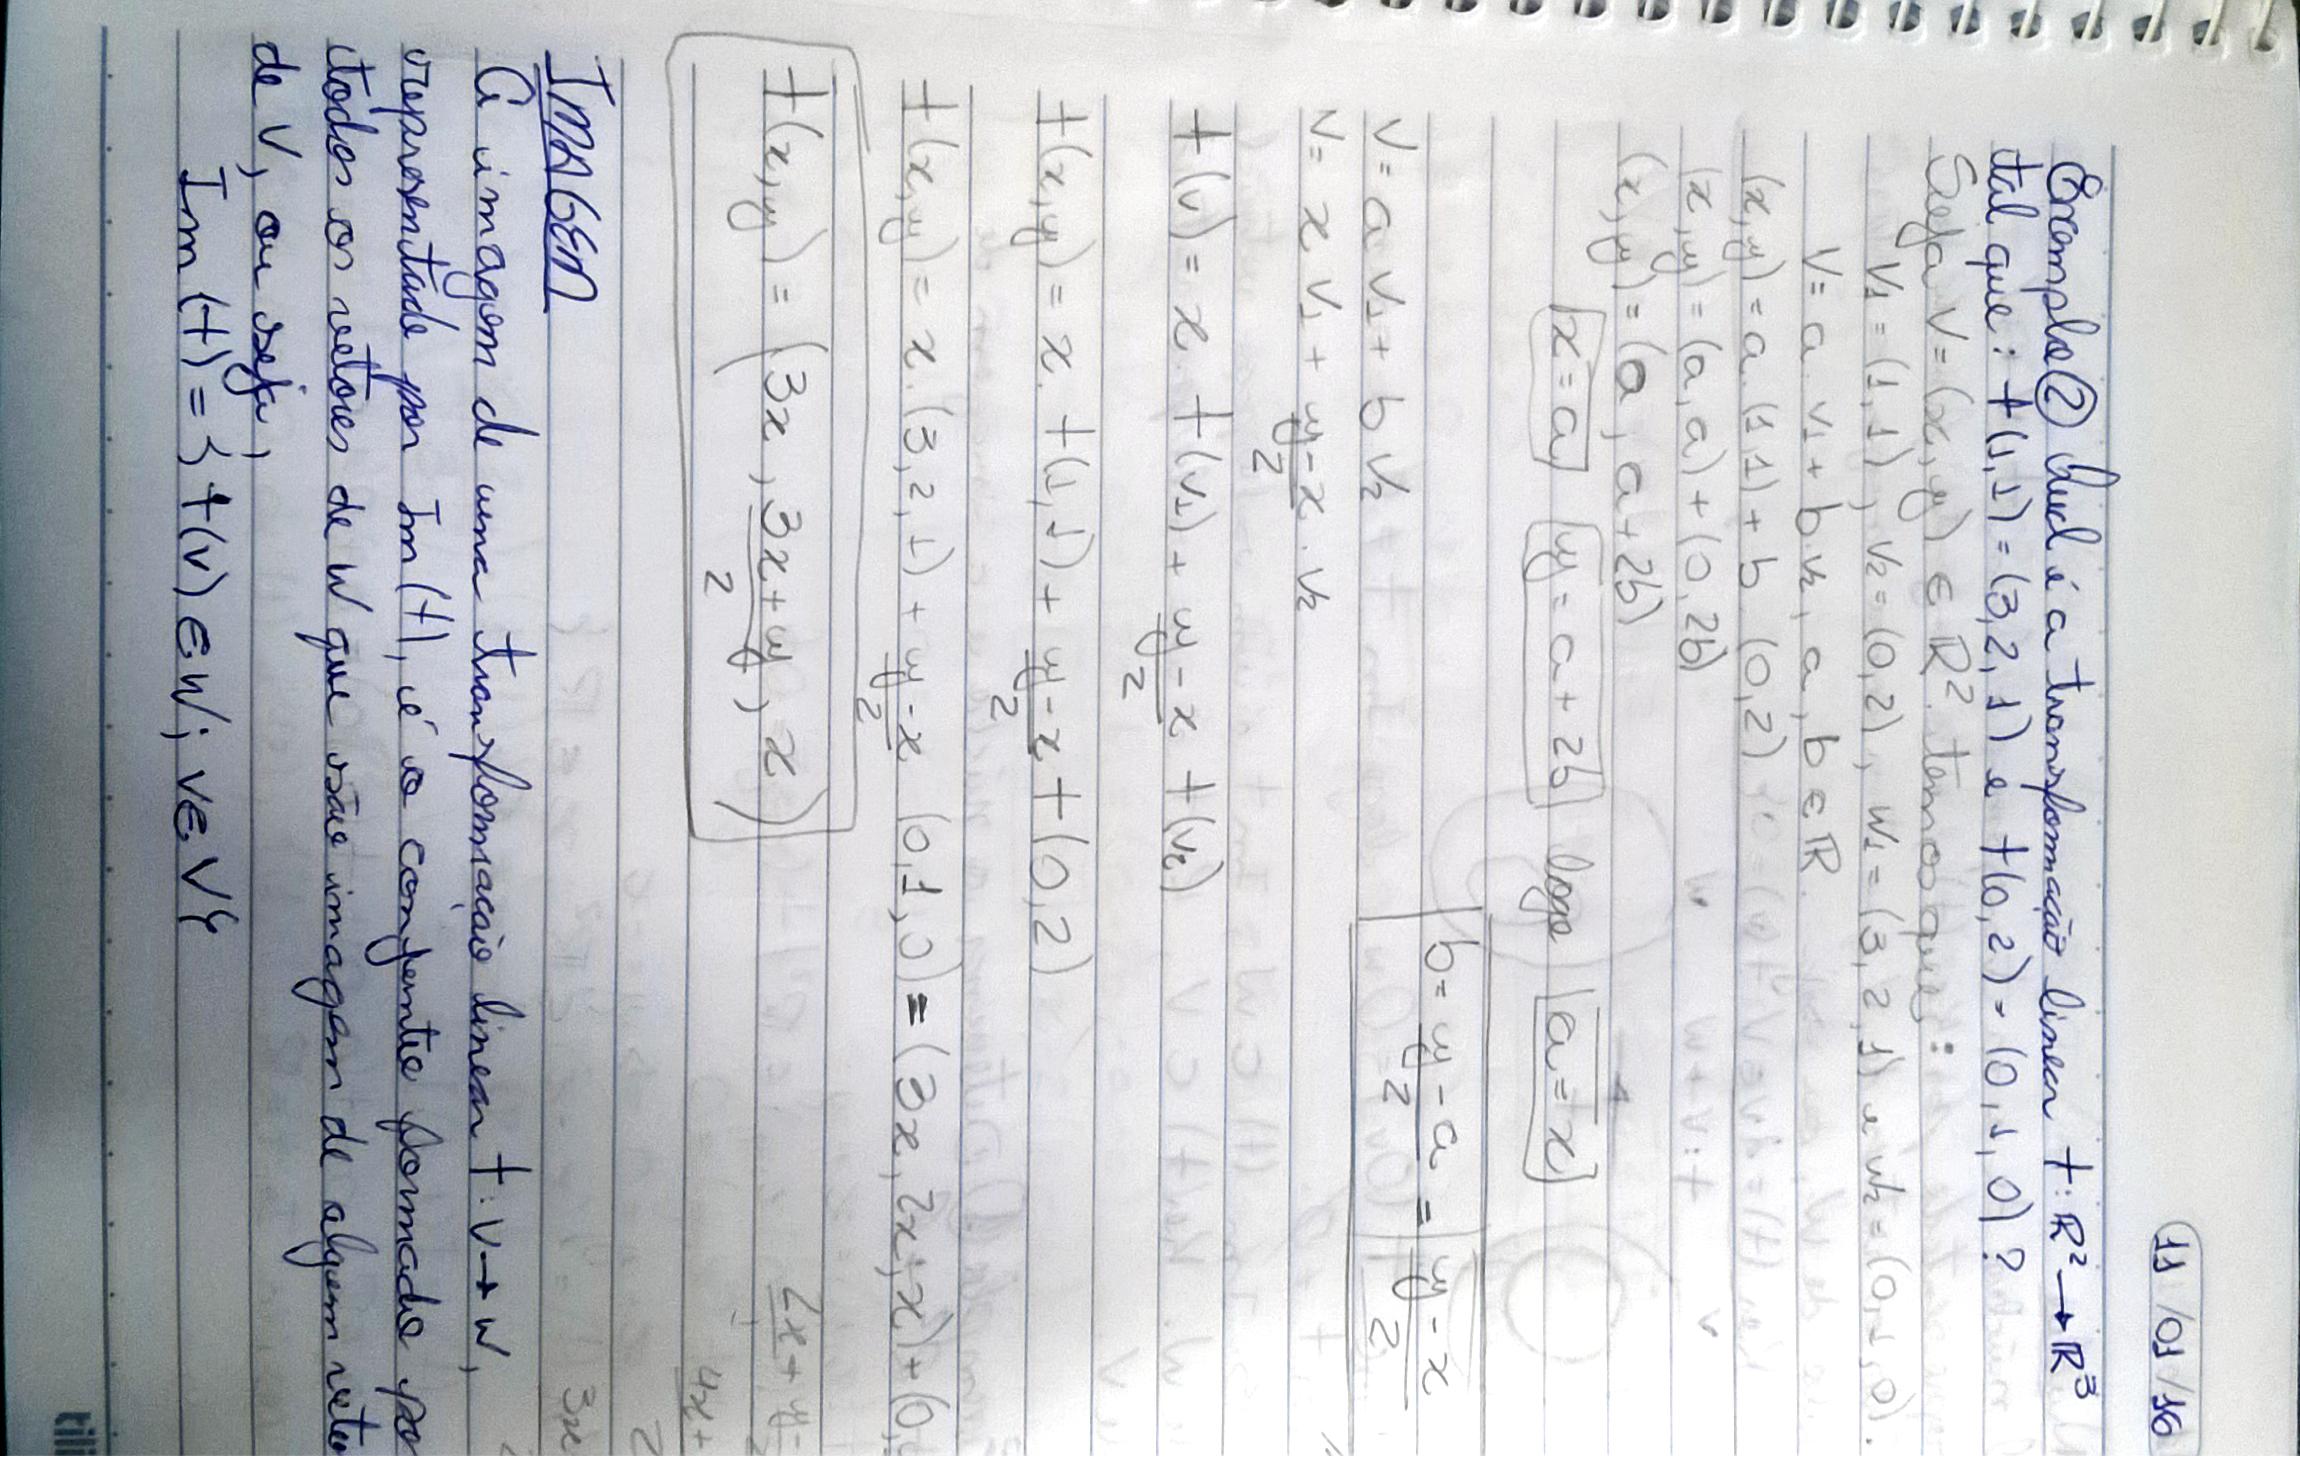 11 /01 /16
Exemplo ② Qual é a transformação linear t: ℝ² → ℝ³
tal que: t(1,1) = (3,2,1) e t(0,2) = (0,1,0)?
Seja V = (x,y) ∈ ℝ². temos que:
V1 = (1,1), V2 = (0,2), W1 = (3,2,1) e W2 = (0,1,0).
V = a. v1 + b.v2, a, b ∈ ℝ.
(x,y) = a. (1,1) + b. (0,2)
(x,y) = (a,a) + (0,2b)
(x,y) = (a, a+2b)
x = a y = a + 2b logo a = x
b = (y - a)/2 = (y - x)/2
V = a V1 + b V2
V = x V1 + (y-x)/2 . V2
t(v) = x. t(v1) + (y-x)/2 t(v2)
t(x,y) = x. t(1,1) + (y-x)/2 t(0,2)
t(x,y) = x. (3,2,1) + (y-x)/2 (0,1,0) = (3x, 2x, x) + (0,
t(x,y) = (3x, (3x+y)/2, x)
2x + y-
4x +
2
3x
IMAGEM
A imagem de uma transformação linear t: V → W,
representada por Im(t), é o conjunto formado po
todos os vetores de W que são imagem de algum veto
de V, ou seja,
Im(t) = { t(v) ∈ W; v ∈ V }
tili